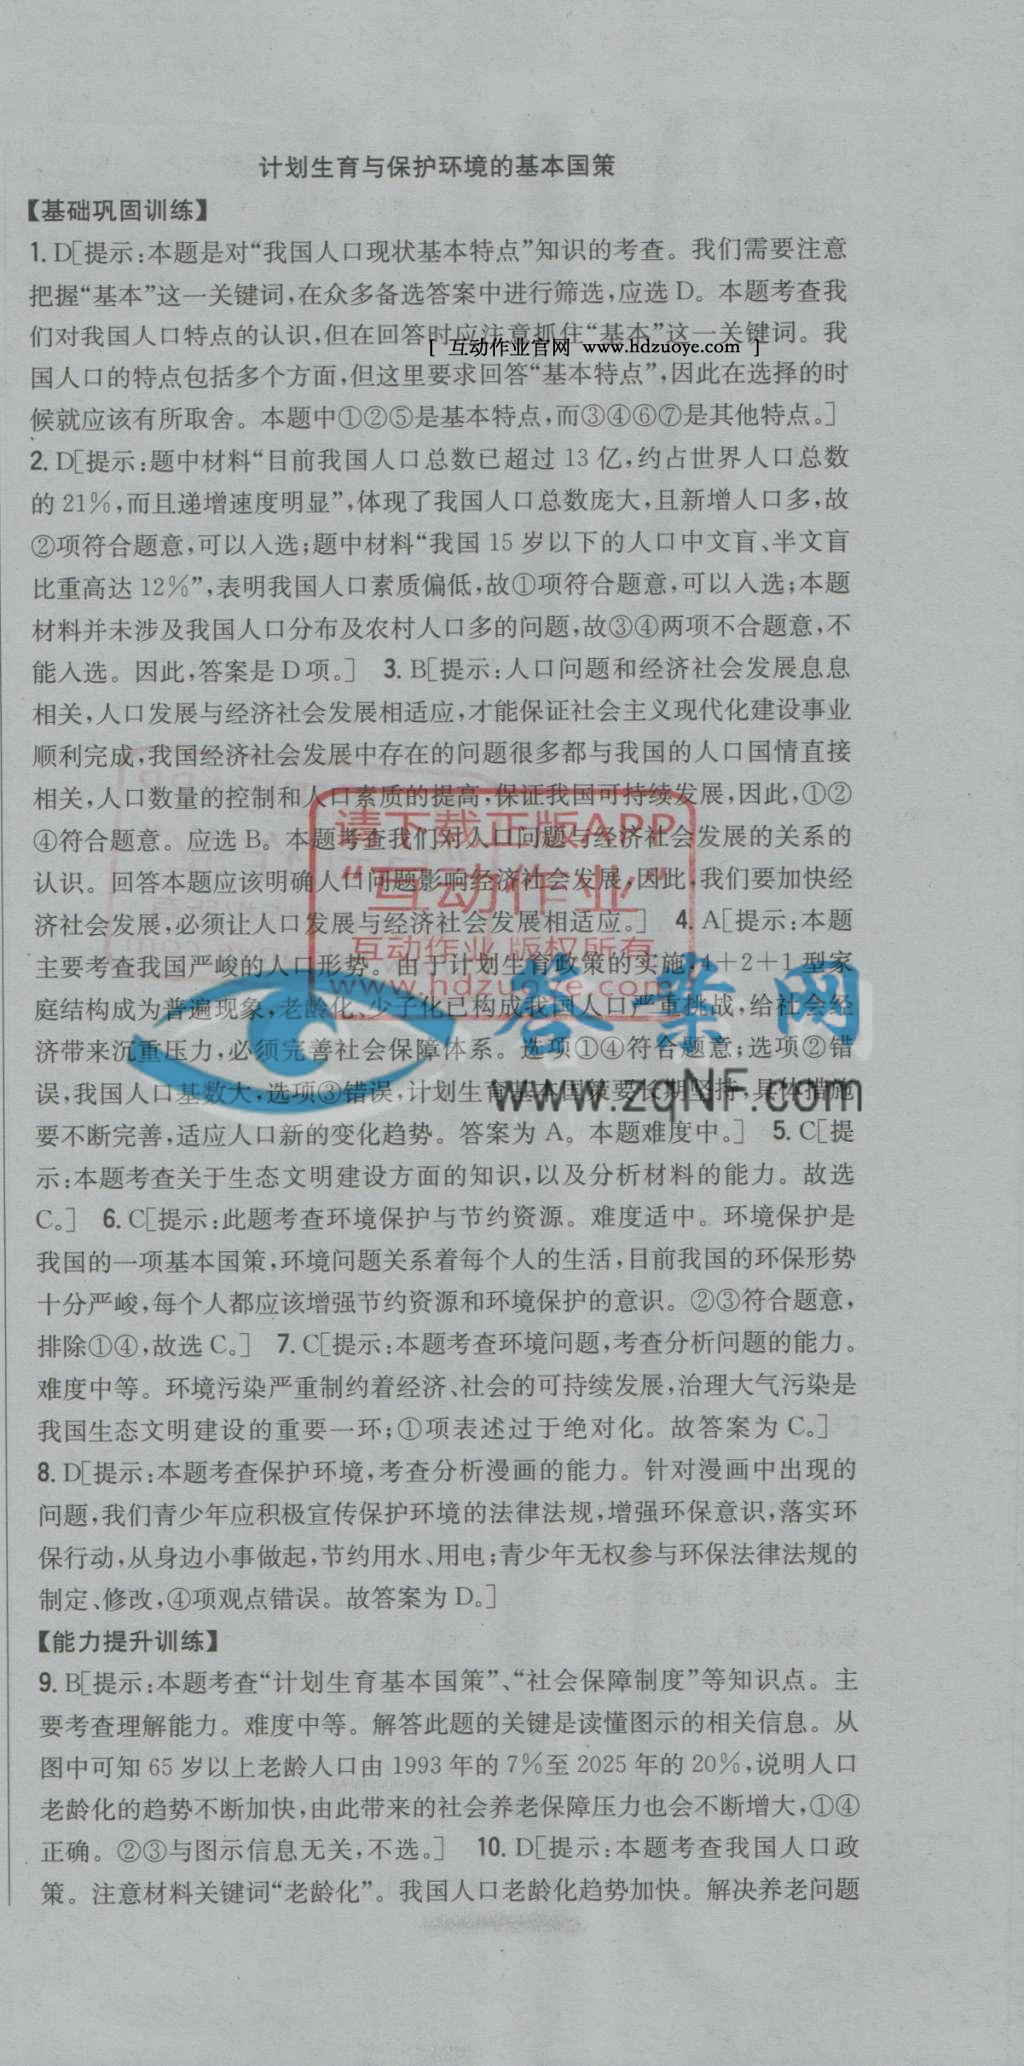 计划生育与保护环境的基本国策
【基础巩固训练】
1. D[提示:本题是对“我国人口现状基本特点”知识的考查。我们需要注意
把握“基本”这一关键词,在众多备选答案中进行筛选,应选D。本题考查我
们对我国人口特点的认识,但在回答时应注意抓住“基本”这一关键词。我
[ 互动作业官网 www.hdzuoye.com ]
国人口的特点包括多个方面,但这里要求回答“基本特点”,因此在选择的时
候就应该有所取舍。本题中①②⑤是基本特点,而③④⑥⑦是其他特点。]
2. D[提示:题中材料“目前我国人口总数已超过 13 亿,约占世界人口总数
的 21%,而且递增速度明显”,体现了我国人口总数庞大,且新增人口多,故
②项符合题意,可以入选;题中材料“我国 15 岁以下的人口中文盲、半文盲
比重高达 12%”,表明我国人口素质偏低,故①项符合题意,可以入选;本题
材料并未涉及我国人口分布及农村人口多的问题,故③④两项不合题意,不
能入选。因此,答案是D项。] 3. B[提示:人口问题和经济社会发展息息
相关,人口发展与经济社会发展相适应,才能保证社会主义现代化建设事业
顺利完成,我国经济社会发展中存在的问题很多都与我国的人口国情直接
相关,人口数量的控制和人口素质的提高,保证我国可持续发展,因此,①②
④符合题意。应选 B。本题考查我们对人口问题与经济社会发展的关系的
认识。回答本题应该明确人口问题影响经济社会发展,因此,我们要加快经
济社会发展,必须让人口发展与经济社会发展相适应。] 4. A[提示:本题
主要考查我国严峻的人口形势。由于计划生育政策的实施,4+2+1 型家
庭结构成为普遍现象,老龄化、少子化已构成我国人口严重挑战,给社会经
济带来沉重压力,必须完善社会保障体系。选项①④符合题意;选项②错
误,我国人口基数大,选项③错误,计划生育基本国策要长期坚持,具体措施
要不断完善,适应人口新的变化趋势。答案为 A。本题难度中。] 5. C[提
示:本题考查关于生态文明建设方面的知识,以及分析材料的能力。故选
C。] 6. C[提示:此题考查环境保护与节约资源。难度适中。环境保护是
我国的一项基本国策,环境问题关系着每个人的生活,目前我国的环保形势
十分严峻,每个人都应该增强节约资源和环境保护的意识。②③符合题意,
排除①④,故选 C。] 7. C[提示:本题考查环境问题,考查分析问题的能力。
难度中等。环境污染严重制约着经济、社会的可持续发展,治理大气污染是
我国生态文明建设的重要一环;①项表述过于绝对化。故答案为 C。]
8. D[提示:本题考查保护环境,考查分析漫画的能力。针对漫画中出现的
问题,我们青少年应积极宣传保护环境的法律法规,增强环保意识,落实环
保行动,从身边小事做起,节约用水、用电;青少年无权参与环保法律法规的
制定、修改,④项观点错误。故答案为 D。]
【能力提升训练】
9. B[提示:本题考查“计划生育基本国策”、“社会保障制度”等知识点。主
要考查理解能力。难度中等。解答此题的关键是读懂图示的相关信息。从
图中可知 65 岁以上老龄人口由 1993 年的 7%至 2025 年的 20%,说明人口
老龄化的趋势不断加快,由此带来的社会养老保障压力也会不断增大,①④
正确。②③与图示信息无关,不选。] 10. D[提示:本题考查我国人口政
策。注意材料关键词“老龄化”。我国人口老龄化趋势加快。解决养老问题
请下载正版APP
“互动作业”
互动作业 版权所有
www.hdzuoye.com
答案网
www.zqNF.com